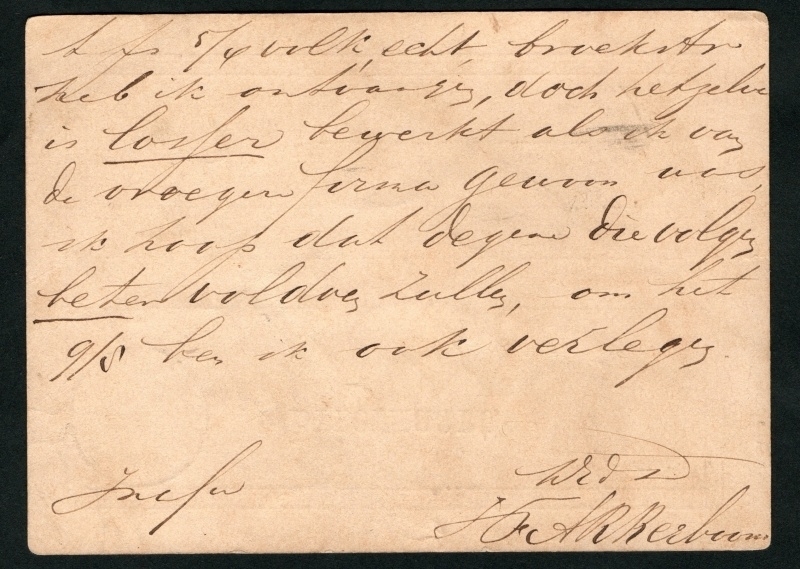 5/4 volk, echt, broekstr
heb ik ontvangen, doch hetzelve
is losser bewerkt als ik van
de vroegere firma gewoon was,
ik hoop dat degene die volgen
beter voldoen zullen, om het
9/8 ben ik ook verlegen
Wed
Akkerboom